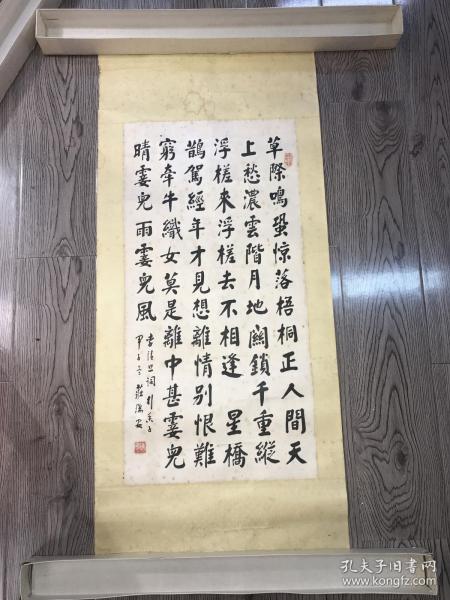 草際鳴蛩惊落梧桐正人間天
上愁濃雲階月地關鎖千重縱
浮槎來浮槎去不相逢 星橋
鵲駕經年才見想離情别恨難
窮牽牛織女莫是離中甚霎兒
晴霎兒雨霎兒風
李清照詞行香子
甲子冬
孔夫子旧书网
www.kongfz.com